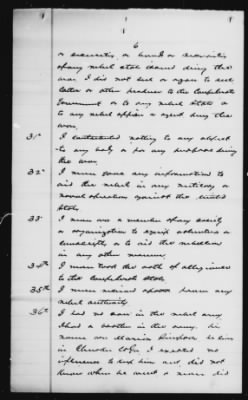 6
or securities or bonds or securities
of any rebel state issued during the
war. I did not sell or agree to sell
cotton or other produce to the Confederate
Government or to any rebel State or
to any rebel officer or agent during the
war.
31st I contributed nothing to any
to any body or for any purpose during
the war.
32d I never gave any information to
aid the rebel in any military or
naval operation against the United
States
33 I never was a member of any society
or organization to equip volunteers or
or to aid the rebellion
in any other manner.
34th I never took the oath of allegiance
to the Confederate States
35th I never received a from any
rebel authority.
36th I had no in the rebel army
I had a brother in the army. his
name was Marion he lives
in Cherokee Co Ga. I exerted no
influence to keep him and did not
know when he went & never did